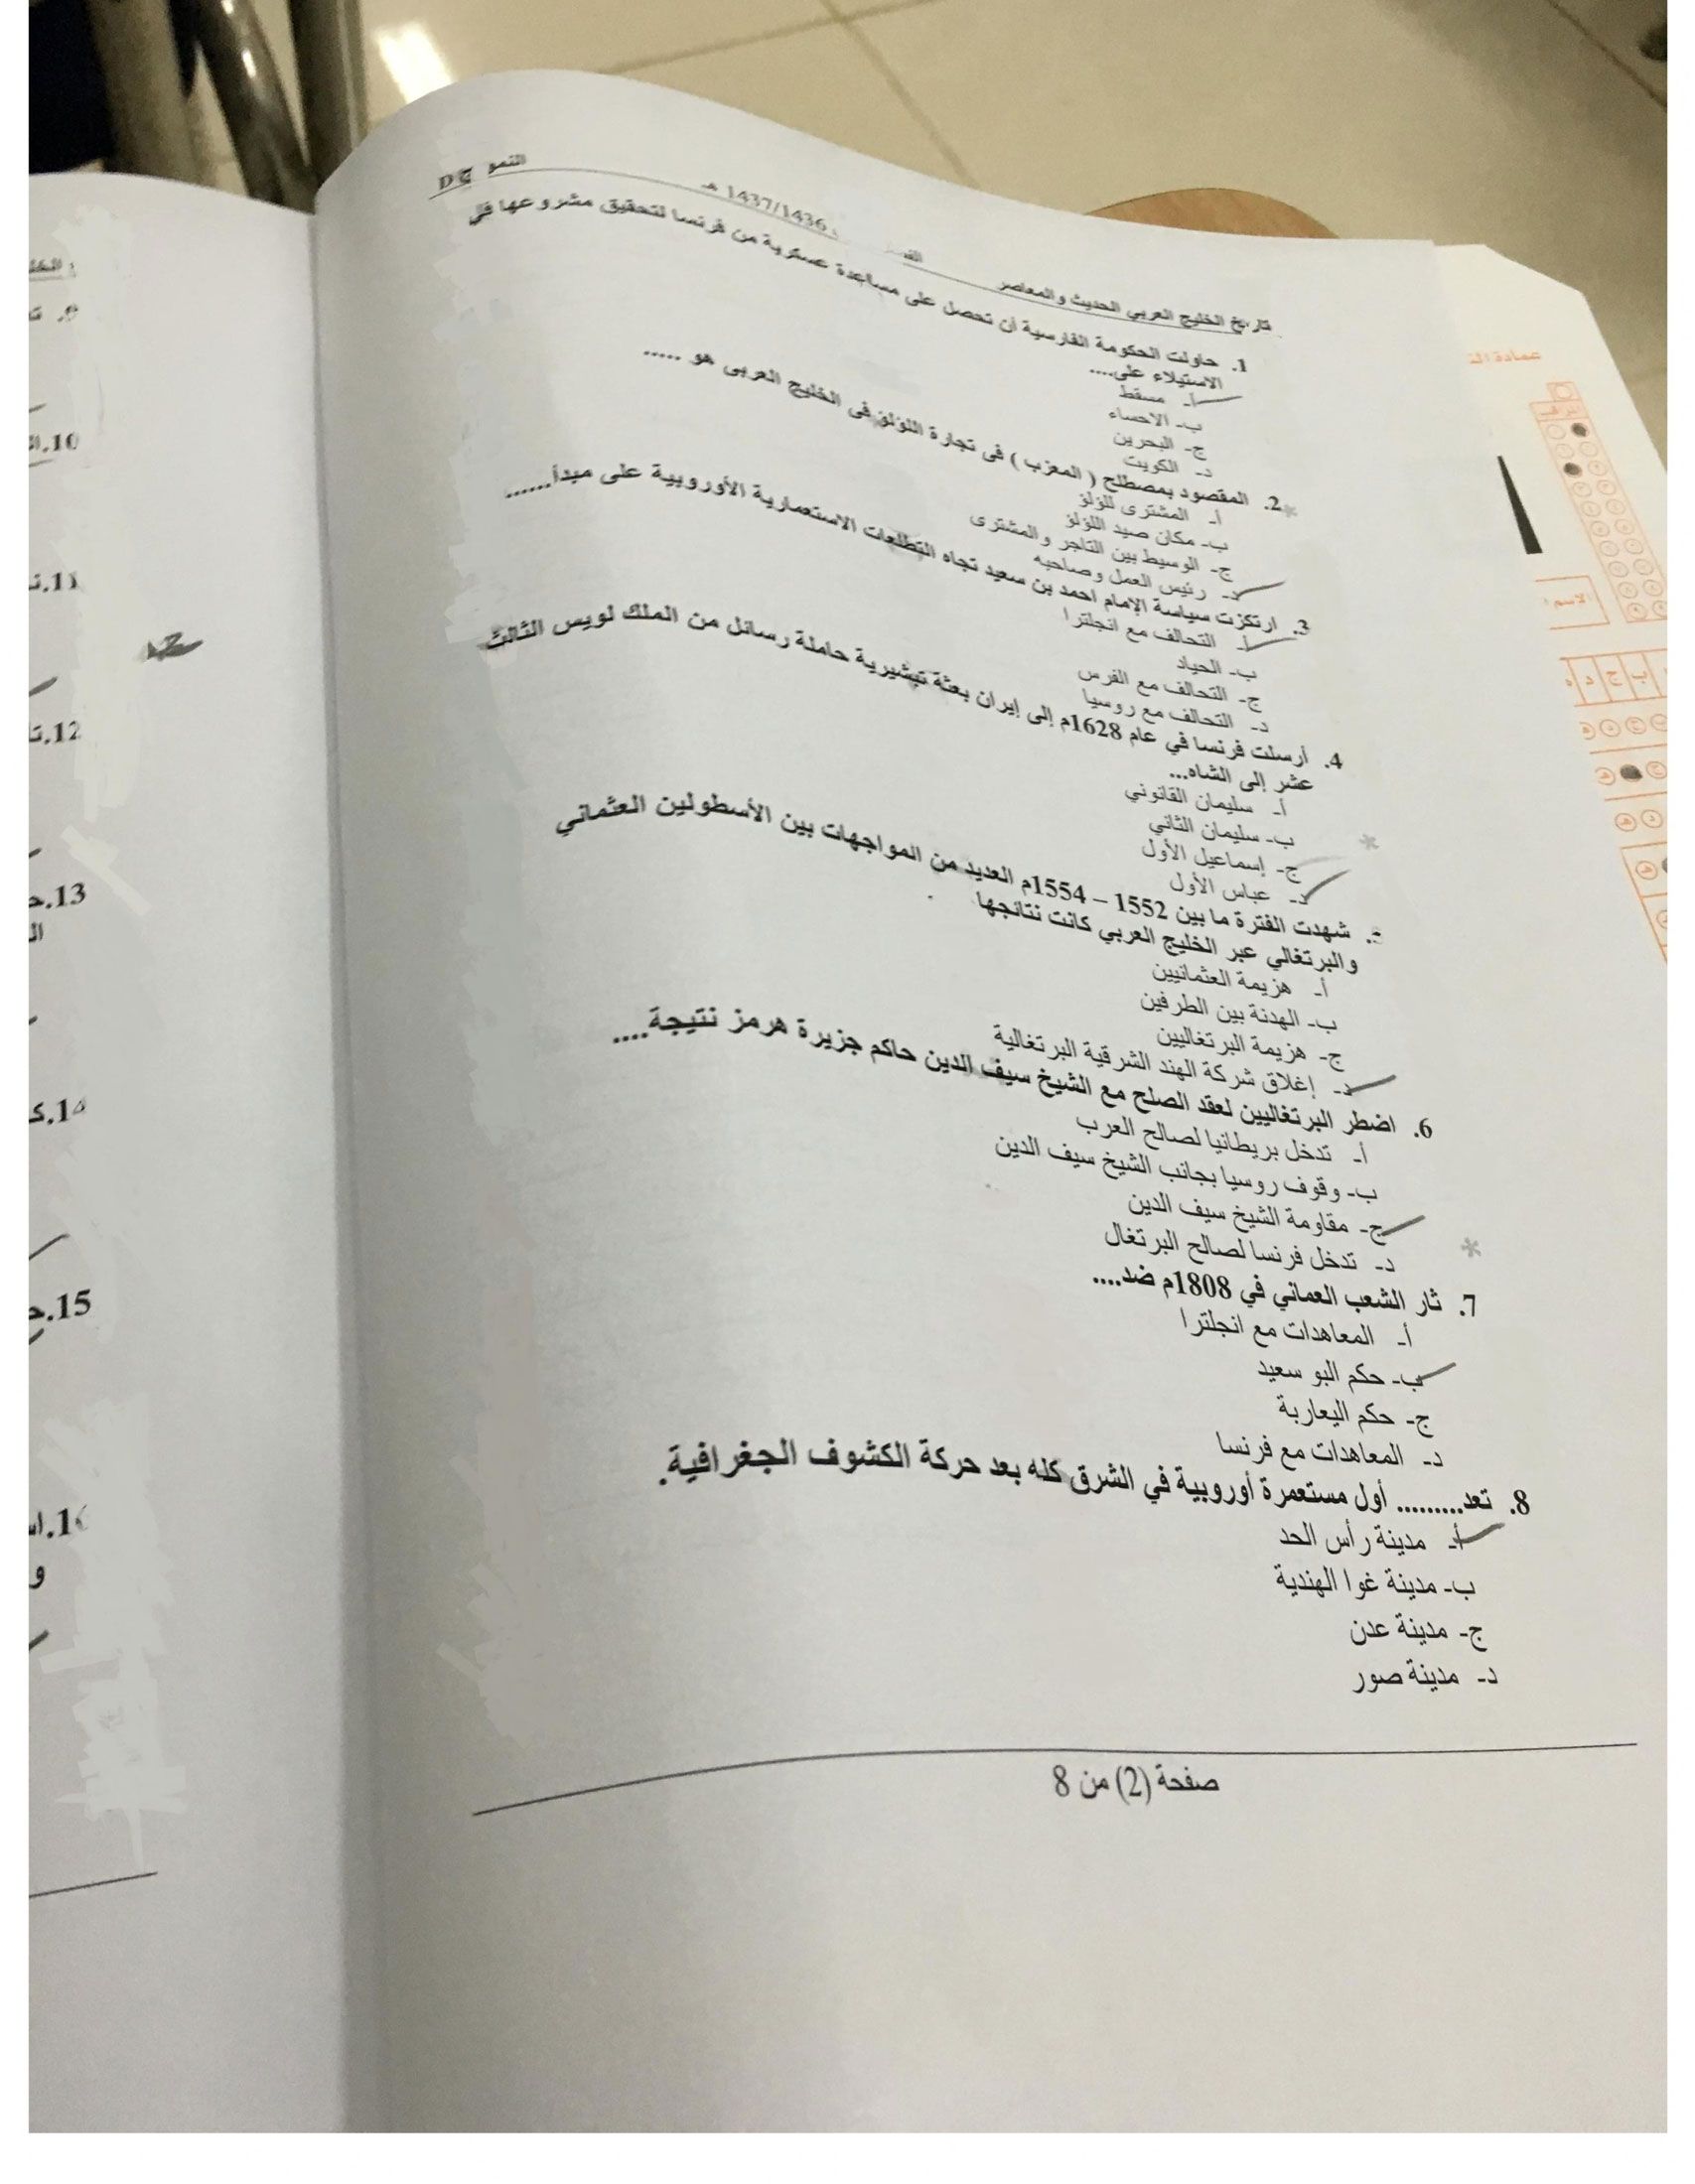 تاريخ الخليج العربي الحديث والمعاصر 1437/1436 هـ D
1. حاولت الحكومة الفارسية ان تحصل على مساعدة عسكرية من فرنسا لتحقيق مشروعها في
الاستيلاء على....
أ- مسقط
ب- الاحساء
ج- البحرين
د- الكويت
2. المقصود بمصطلح ( المعزب ) فى تجارة اللؤلؤ فى الخليج العربى هو .....
أ- المشترى للؤلؤ
ب- مكان صيد اللؤلؤ
ج- الوسيط بين التاجر والمشترى
د- رئيس العمل وصاحبه
3. ارتكزت سياسة الإمام احمد بن سعيد تجاه التطلعات الاستعمارية الأوروبية على مبدأ......
أ- التحالف مع انجلترا
ب- الحياد
ج- التحالف مع الفرس
د- التحالف مع روسيا
4. أرسلت فرنسا في عام 1628م إلى إيران بعثة تبشيرية حاملة رسائل من الملك لويس الثالث
عشر إلى الشاه...
أ- سليمان القانوني
ب- سليمان الثاني
ج- إسماعيل الأول
د- عباس الأول
5. شهدت الفترة ما بين 1552 – 1554م العديد من المواجهات بين الأسطولين العثماني
والبرتغالي عبر الخليج العربي كانت نتائجها
أ- هزيمة العثمانيين
ب- الهدنة بين الطرفين
ج- هزيمة البرتغاليين
د- إغلاق شركة الهند الشرقية البرتغالية
6. اضطر البرتغاليين لعقد الصلح مع الشيخ سيف الدين حاكم جزيرة هرمز نتيجة....
أ- تدخل بريطانيا لصالح العرب
ب- وقوف روسيا بجانب الشيخ سيف الدين
ج- مقاومة الشيخ سيف الدين
د- تدخل فرنسا لصالح البرتغال
7. ثار الشعب العماني في 1808م ضد....
أ- المعاهدات مع انجلترا
ب- حكم البو سعيد
ج- حكم اليعاربة
د- المعاهدات مع فرنسا
8. تعد......... أول مستعمرة أوروبية في الشرق كله بعد حركة الكشوف الجغرافية.
أ- مدينة رأس الحد
ب- مدينة غوا الهندية
ج- مدينة عدن
د- مدينة صور
صفحة (2) من 8
عمادة
الاسم :
ب ج د ه
.10
.11
.12
.13
.14
.15